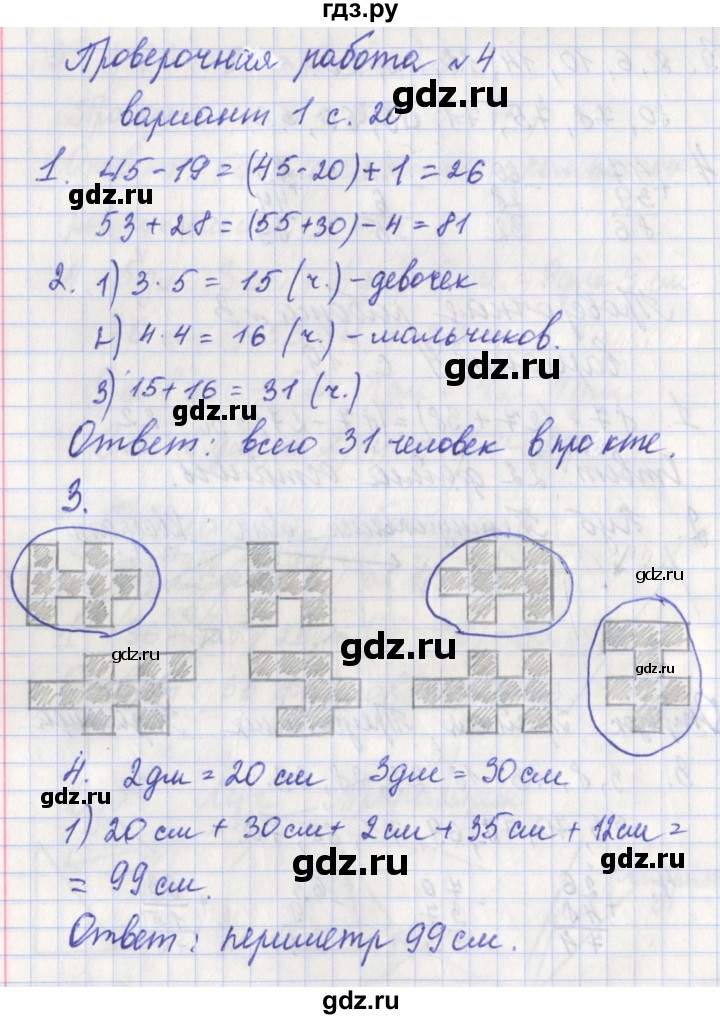 гдз.ру
Проверочная работа №4
gdz.ru
вариант 1 с. 20
1. 45-19 = (45-20)+1 = 26
gdz.ru
53+28 = (55+30)-4 = 81
2. 1) 3·5 = 15 (ч.) - девочек
2) 4·4 = 16 (ч.) - мальчиков.
gdz.ru
3) 15+16 = 31 (ч.)
gdz.ru
Ответ: всего 31 человек в проекте.
3.
gdz.ru
gdz.ru
gdz.ru
gdz.ru
4. 2дм = 20см 3дм = 30см
gdz.ru
1) 20см + 30см + 2см + 35см + 12см =
gdz.ru
gdz.ru
= 99см.
Ответ: периметр 99см.
gdz.ru
gdz.ru